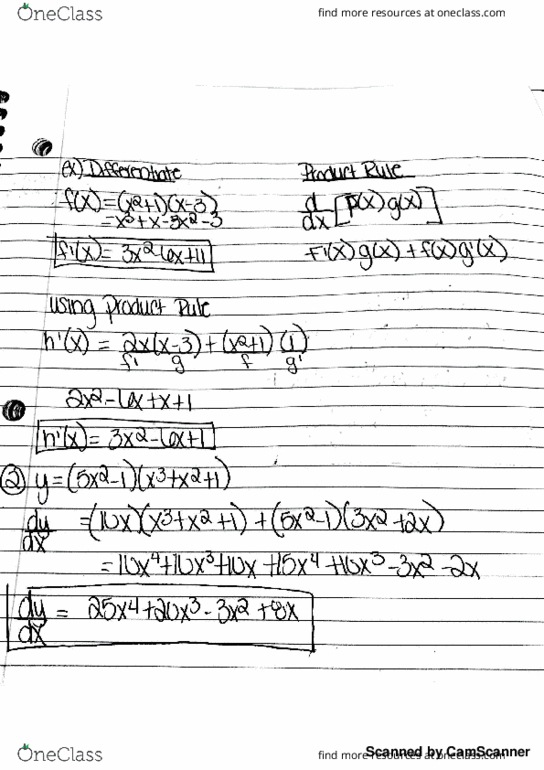 OneClass
find more resources at oneclass.com
ex) Differentiate
f(x) = (x²+1)(x-3)
= x³+x-3x²-3
f'(x) = 3x²-6x+1
Product Rule
d/dx [f(x)g(x)]
f'(x)g(x) + f(x)g'(x)
using Product Rule
h'(x) = 2x(x-3) + (x²+1)(1)
f' g f g'
2x²-6x+x+1
h'(x) = 3x²-6x+1
② y=(5x²-1)(x³+x²+1)
dy/dx =(10x)(x³+x²+1) + (5x²-1)(3x²+2x)
=10x⁴+10x³+10x+15x⁴+10x³-3x²-2x
dy/dx = 25x⁴+20x³-3x²+8x
OneClass
find more resources at oneclass.com
Scanned by CamScanner